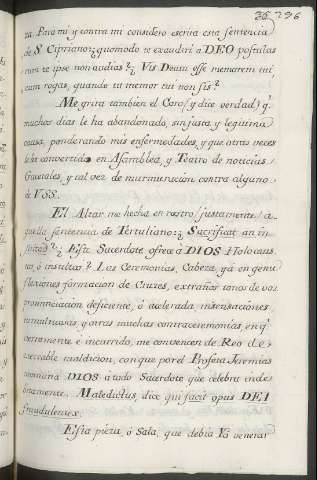 236
ta. Para mi y contra mi considero escrita esta sentencia
de S. Cipriano: ¿quomodo te exaudiri a DEO postulas
cum te ipse non audias? ¿Vis Deum esse memorem tui,
cum rogas, quando tu memor tui non sis?
Me grita tambien el Coro (y dice verdad) q.
muchos dias le ha abandonado, sin justa y legitima
causa, ponderando mis enfermedades, y que otras veces
le ha convertido en Asamblea, y Teatro de noticias,
Gazetales, y tal vez de murmuracion contra alguno
ó VSS.
El Altar me hecha en rostro justamente a-
quella sentencia de Tertuliano: ¿Sacrificat an in-
sultat? ¿Este Sacerdote ofrece á DIOS Holocaus-
tos, ó insultos? Las Ceremonias, Cabeza, yá en genu-
flexiones, formacion de Cruzes, extraños tonos de voz,
pronunciacion deficiente, ó acelerada,
tumultuosas, y otras muchas contraceremonias, en q.
venamente e incurrido, me convencen de Reo de e-
xecrable maldicion, con que por el Profeta Jeremias
DIOS á todo Sacerdote que celebra inde-
votamente. Maledictus, dice, qui facit opus DEI
fraudulenter.
Esta pieza, ó Sala, que debia Yo venerar